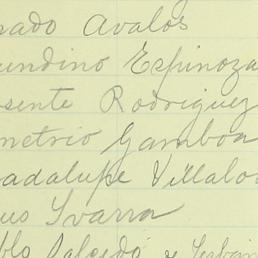 rado Avalos
undino Espinoza
esente Rodriguez
metrio Gamboa
adalupe Villalo
us Ivarra
blo Salcedo y Urbin